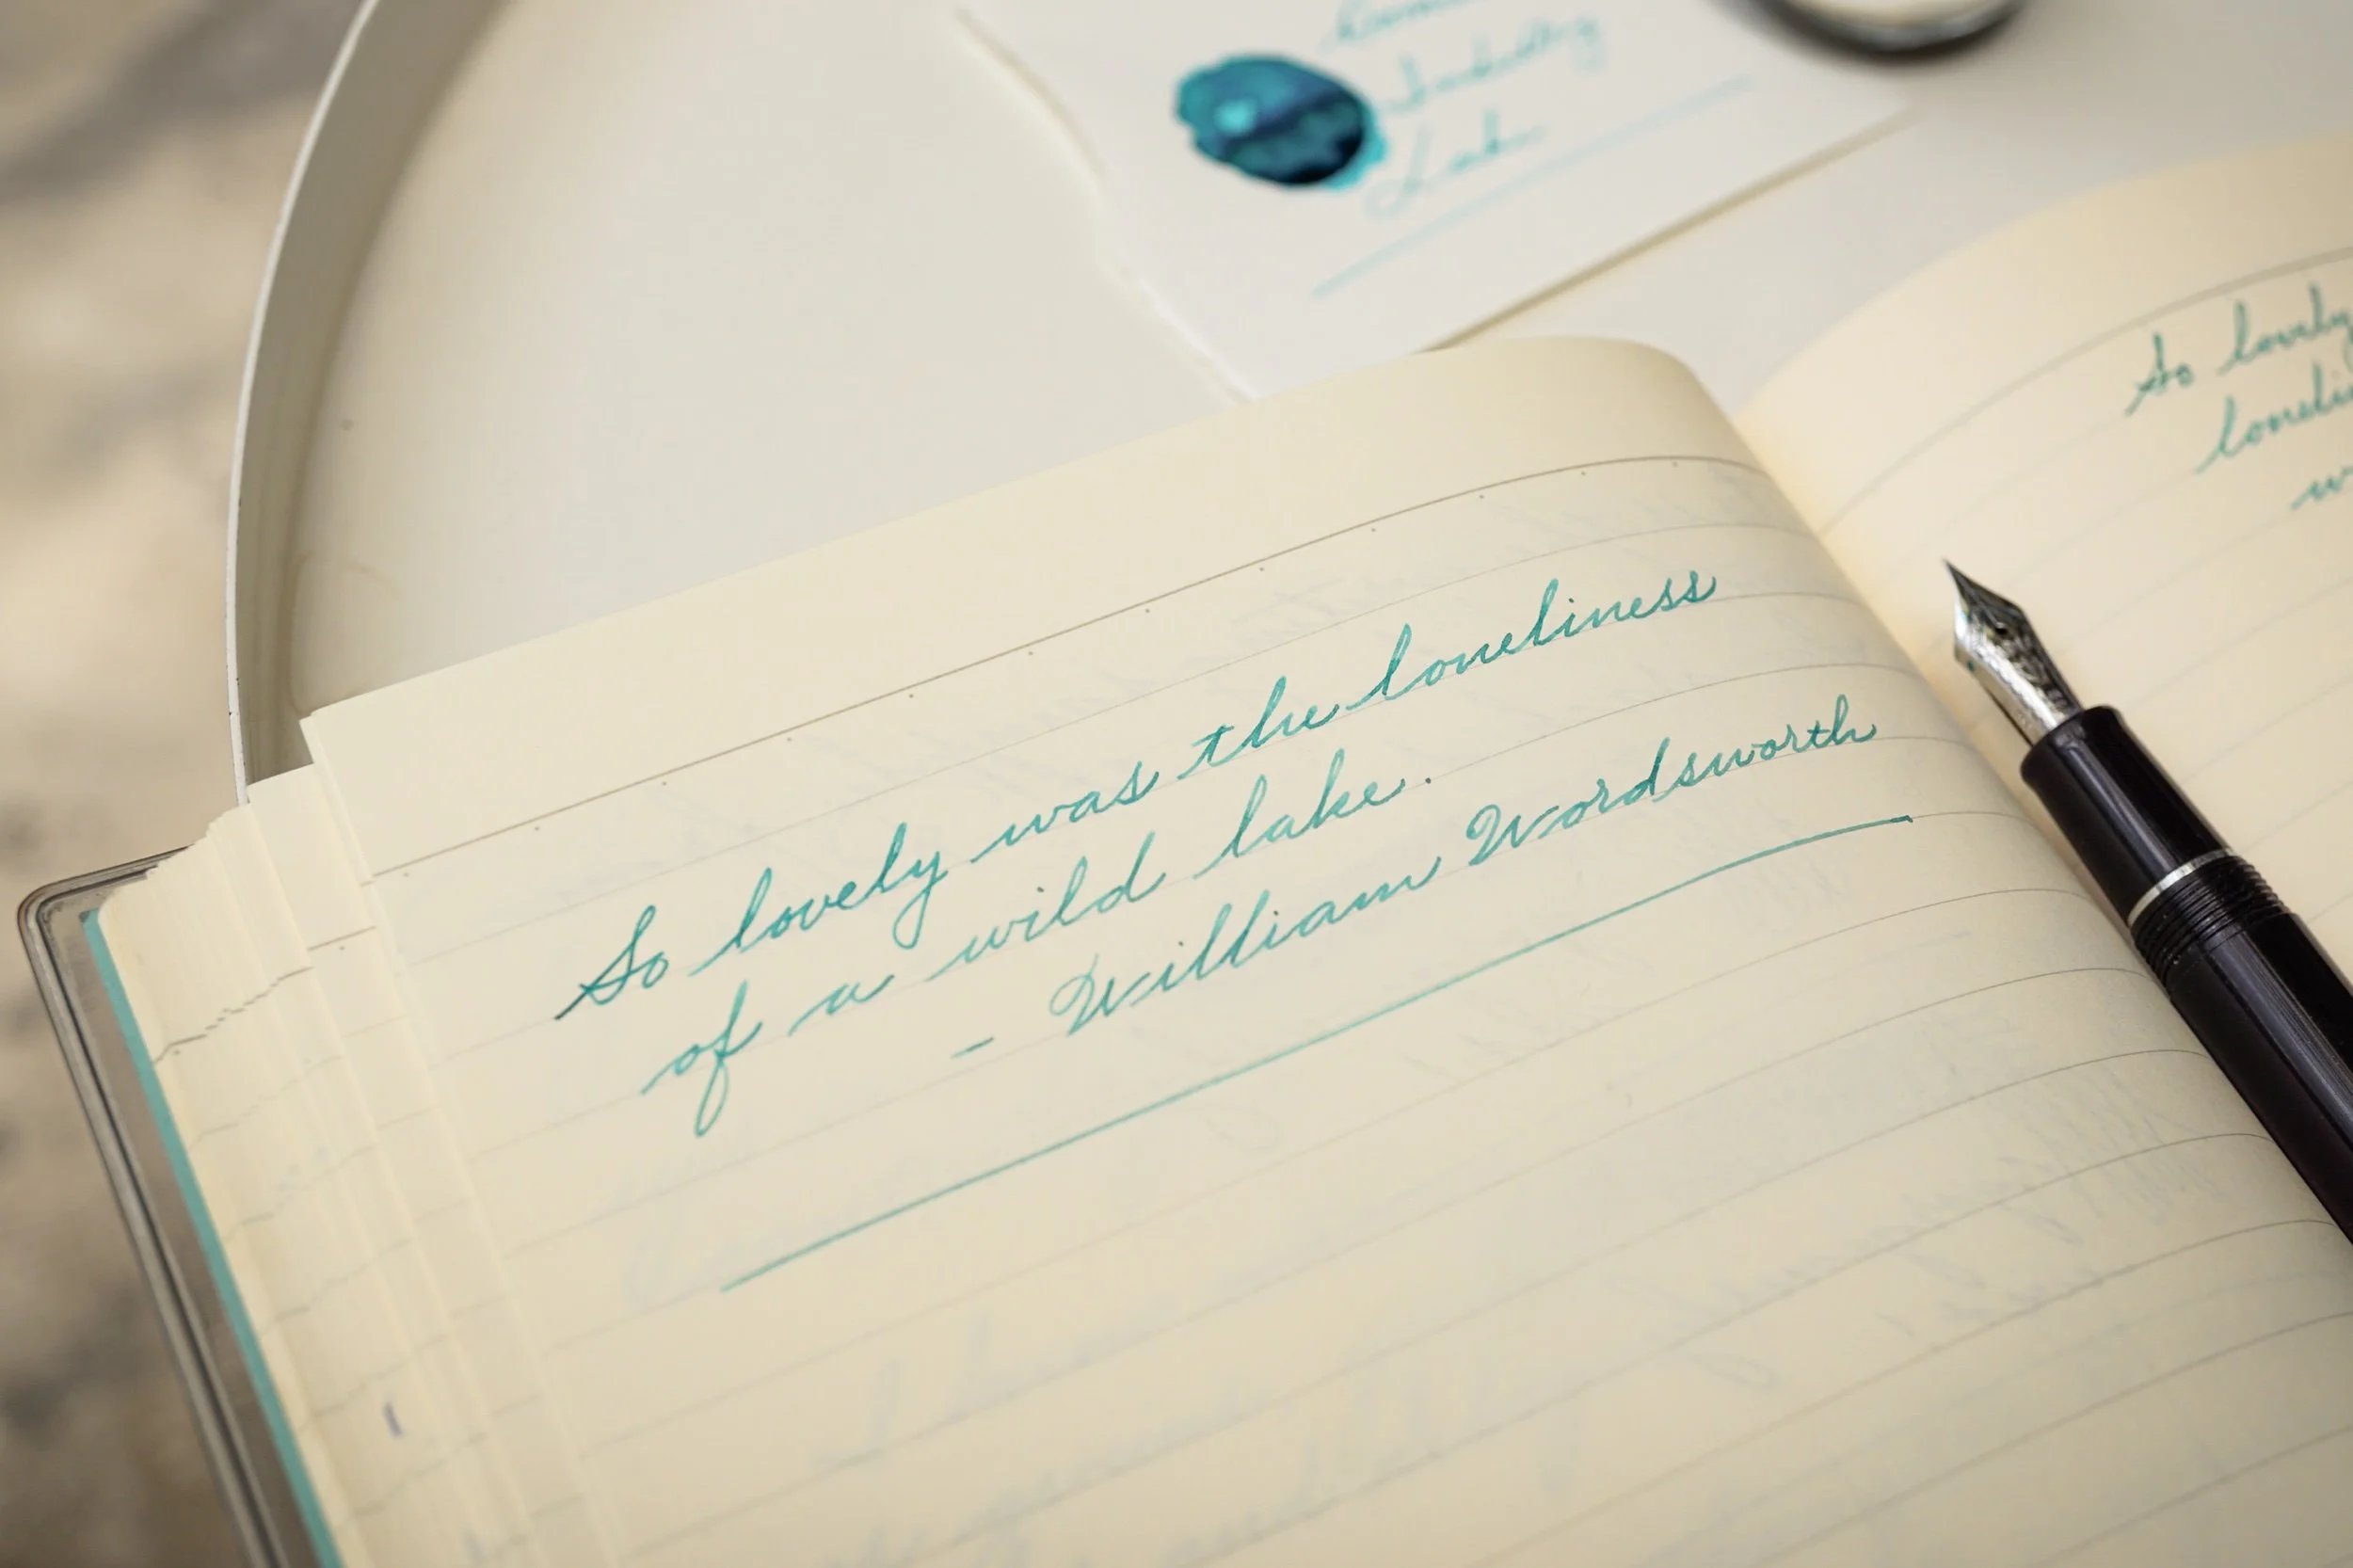 Lake
So lovely was the loneliness
of a wild lake.
- William Wordsworth
So lovely